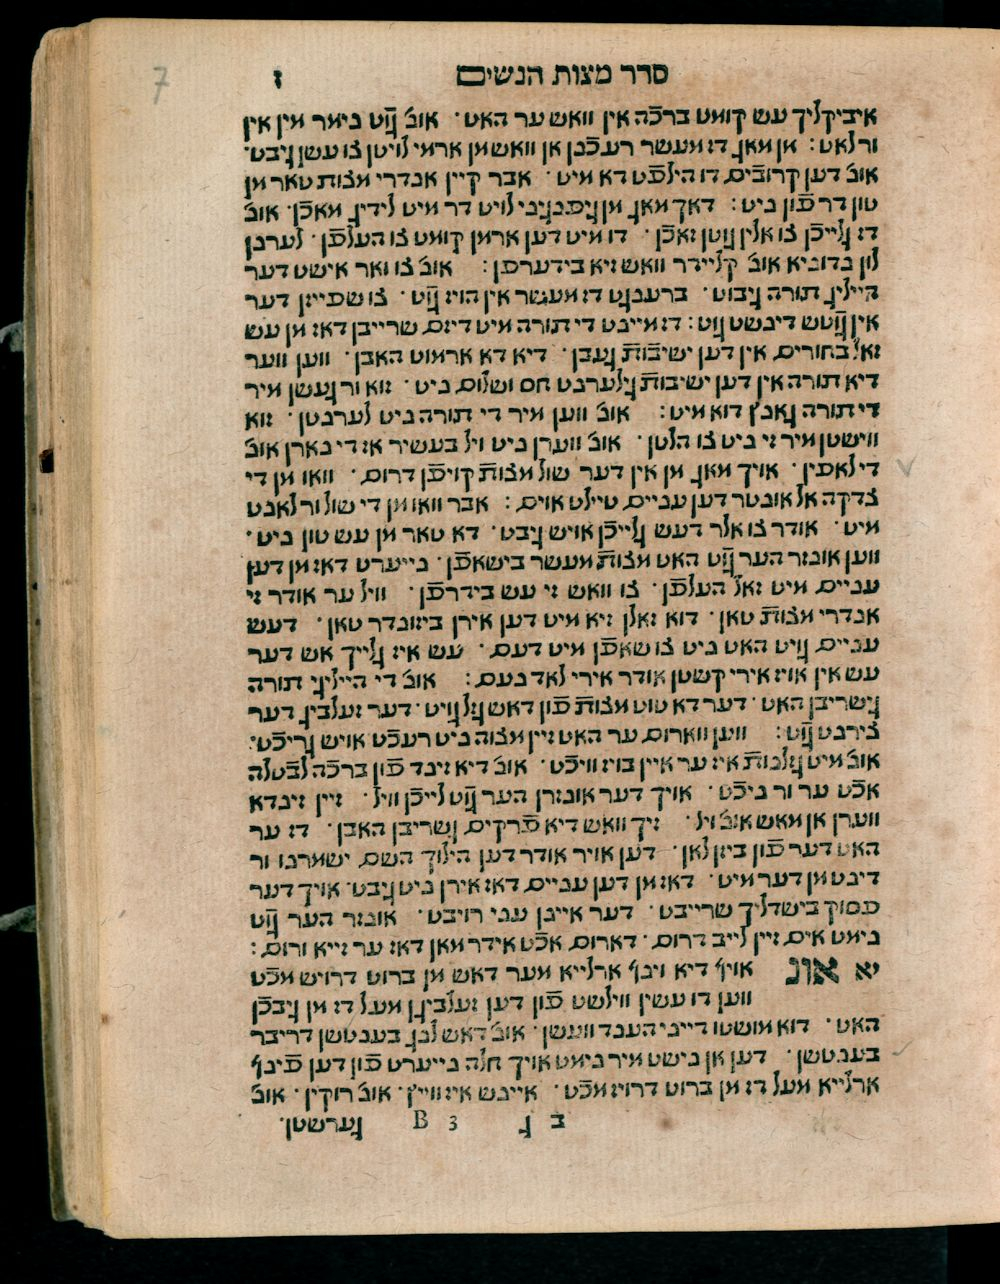 סדר מצות הנשים ז
7
איביקליך עש קומט ברכה אין וואש ער האט· אונ׳ גֿיט נימר מין אין
ור לאט: מן מאג דז מעשר רעכֿנן אן וואש מן ארמי לויטן צו עשן גיבט·
אונ׳ דען קרובֿים דו הילפֿט דא מיט· אבר קיין אנדרי מצות טאר מן
טון דר פֿון ניט: דאך מאג מן
לויט דר מיט לידיג מאכֿן· אונ׳
דז גלייכֿן צו אלין גוטן זאכֿן· דו מיט דען ארמן קומט צו העלפֿן· לערנן
לון נדוניא אונ׳ קליידר וואש זיא בידערפֿן: אונ׳ צו ואר אישט דער
היילג תורה גיבוט· ברענגט דז מעשר אין הויז גֿיט· צו שפייזן דער
אין גֿיטש דינשט גיט: דז מיינט די תורה מיט דיזם שרייבן דאז מן עש
זאל בחורים אין דען ישיבֿות געבן· דיא דא ארמוט האבן· ווען ווער
דיא תורה אין דען ישיבות גילערנט חס ושלום ניט· זוא ור געשן מיר
די תורה גאנץ דוא מיט: אונ׳ ווען מיר די תורה ניט לערנטן· זוא
ווישטן מיר זי ניט צו הלטן· אונ׳ ווערן ניט ויל בעשיר אז די נארן אונ׳
די לאפין· אויך מאג מן אין דער שול מצות קויפֿן דרום· וואו מן די
צדקה אל אונטר דען עניים טיילט אויס: אבר וואו מן די שול ור לאנט
מיט· אודר צו אלר דעש גלייכֿן אויש גיבט· דא טאר מן עש טון ניט·
ווען אונזר הער גֿיט האט מצות מעשר בישאפֿן· נייערט דאז מן דען
עניים מיט זאל העלפֿן· צו וואש זי עש בידרפֿן· וויל ער אודר זי
אנדרי מצות טאן· דוא זאלן זיא מיט דען אירן ביזונדר טאן· דעש
עניים גויט האט ניט צו שאפֿן מיט דעם· עש איז גלייך אש דער
עש אין אויז אירי קשטן אודר אירי לאד נעם: אונ׳ די היילגי תורה
גישריבן האט· דער דא טוט מצות פֿון דאש גזל גויט· דער זעלביג דער
צירנט גֿיט: ווען ווארום ער האט זיין מצוה ניט רעכט אויש גריכֿט·
אונ׳ מיט גזלנות איז ער איין בויז וויכֿט· אונ׳ דיא זינד פֿון ברכה לבֿטלה
אכֿט ער ור ניכֿט· אויך דער אונזרן הער גֿיט לייכֿן וויל· זיין זינדא
ווערן אן מאש אונ׳ ויל· זיך וואש דיא פֿרקים גשריבן האבן· דז ער
האט דער פֿון ביזן לאן· דען אויר אודר דען הילוך השם ישמרנו ור
דינט מן דער מיט· דאז מן דען עניים דאז אירן ניט גיבט· אויך דער
פסוק בישדליך שרייבט· דער איינן עני רויבט· אונזר הער גֿיט
נימט אים זיין לייב דרום· דארום אכֿט אידר מאן דאז ער זייא ורום:
יא אונ אויף דיא וינף ארלייא מער דאש מן ברוט דרויש מכֿט
ווען דו עשין ווילשט פֿון דען זעלביגן מעל דז מן גיבכֿן
האט· דוא מושטו דייני הענד וועשן· אונ׳ דאש לנג בענטשן דריבר
בענטשן· דען אן נישט מיר נימט אויך חלה נייערט פֿון דען פֿינף
ארלייא מעל דז מן ברוט דרויז מכֿט· איינש איז ווייץ· אונ׳ רוקין· אונ׳
ב ג B 3 גערשטן·